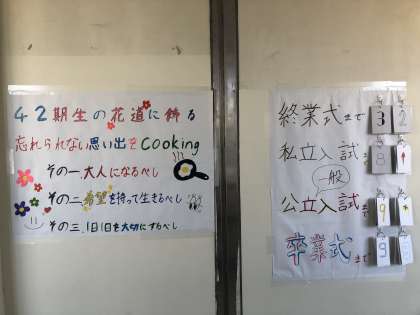 42期生の花道に飾る
忘れられない思い出をCooking
その一.大人になるべし
その二.希望を持って生きるべし
その三.1日1日を大切にすべし
終業式まで 32
私立入試まで 8
一般
公立入試まで 9
卒業式まで 9